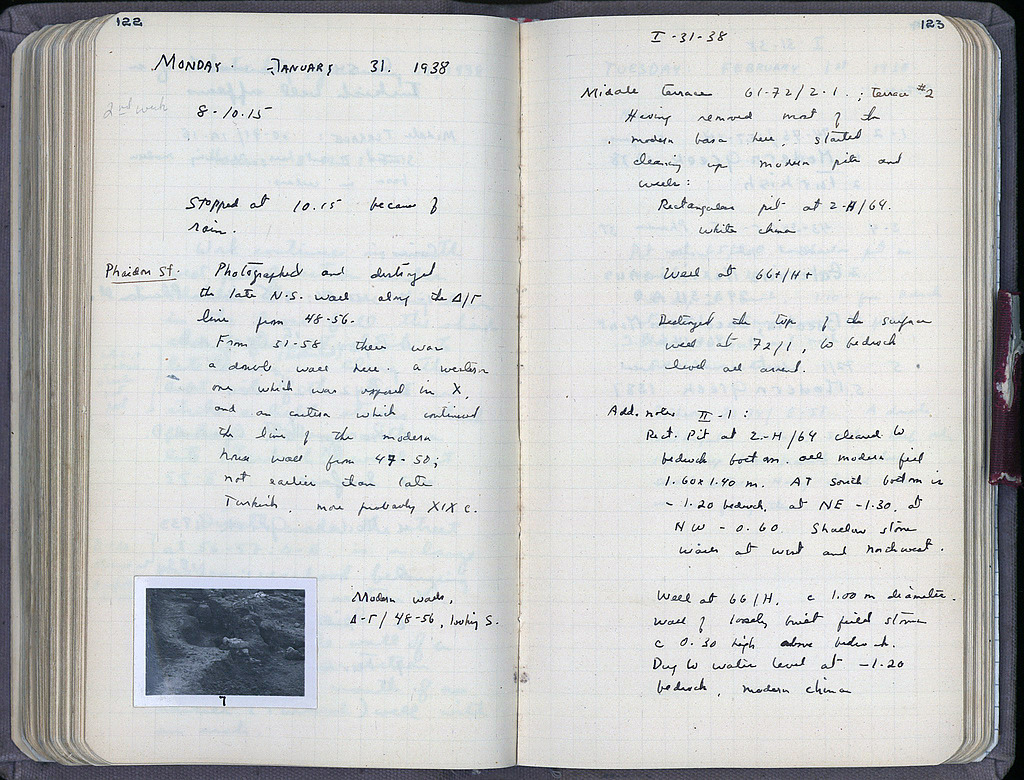 122
MONDAY JANUARY 31. 1938
2nd week
8-10.15
Stopped at 10.15 because of
rain.
Phaidon St. Photographed and destroyed
the late N.S. wall along the Δ/Γ
line from 48-56.
From 51-58 there was
a double wall here. a western
one which was exposed in X,
and an eastern which continued
the line of the modern
house wall from 47-50;
not earlier than late
Turkish, more probably XIX c.
Modern walls,
Δ-Γ/48-56, looking S.
7
123
I-31-38
Middle Terrace 61-72/2-1.; Terrace #2
Having removed most of the
modern here, started
cleaning up modern pits and
wells:
Rectangular pit at 2-H/64.
white china
Well at 66+/H+
Destroyed the top of the surface
well at 72/1, to bedrock
level all around.
Add. notes II-1:
Rect. Pit at 2-H/64 cleared to
bedrock bottom. all modern fill
1.60x1.40 m. AT south bottom is
-1.20 bedrock, at NE -1.30, at
NW -0.60 Shallow stone
walls at west and northwest.
Well at 66/H, c 1.00 m diameter.
Wall of loosely built field stones
c 0.30 high above bedrock.
Dug to water level at -1.20
bedrock, modern china